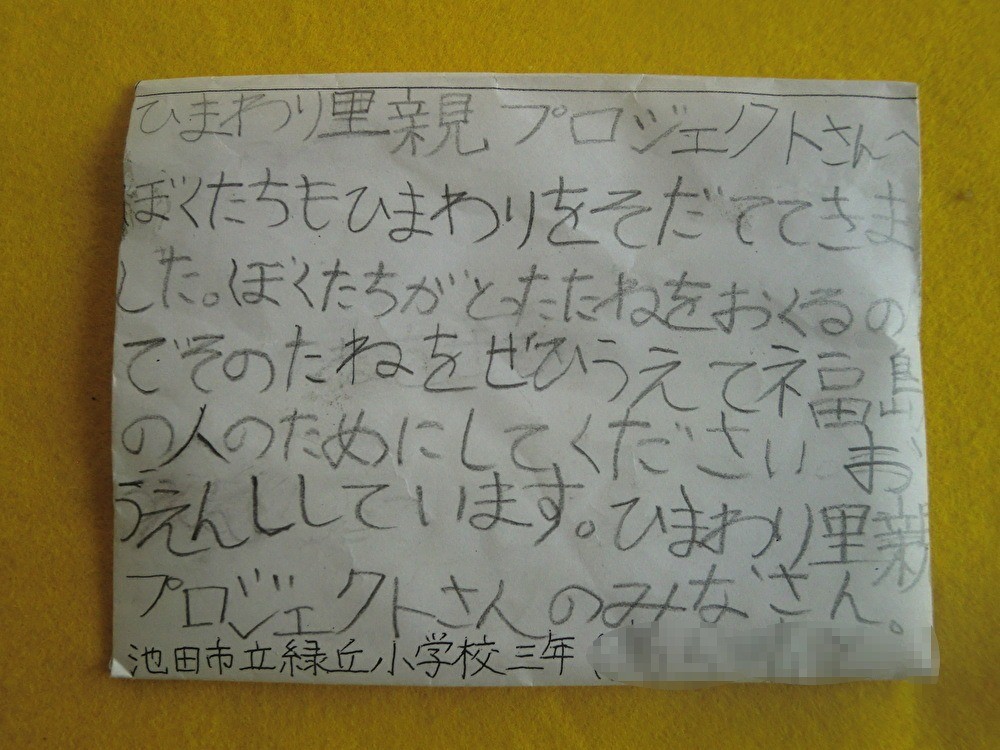 ひまわり里親プロジェクトさんへ
ぼくたちもひまわりをそだててきま
した。ぼくたちがとったたねをおくるの
でそのたねをぜひうえて福島
の人のためにしてください お
うえんししています。ひまわり里親
プロジェクトさんのみなさん。
池田市立緑丘小学校三年(